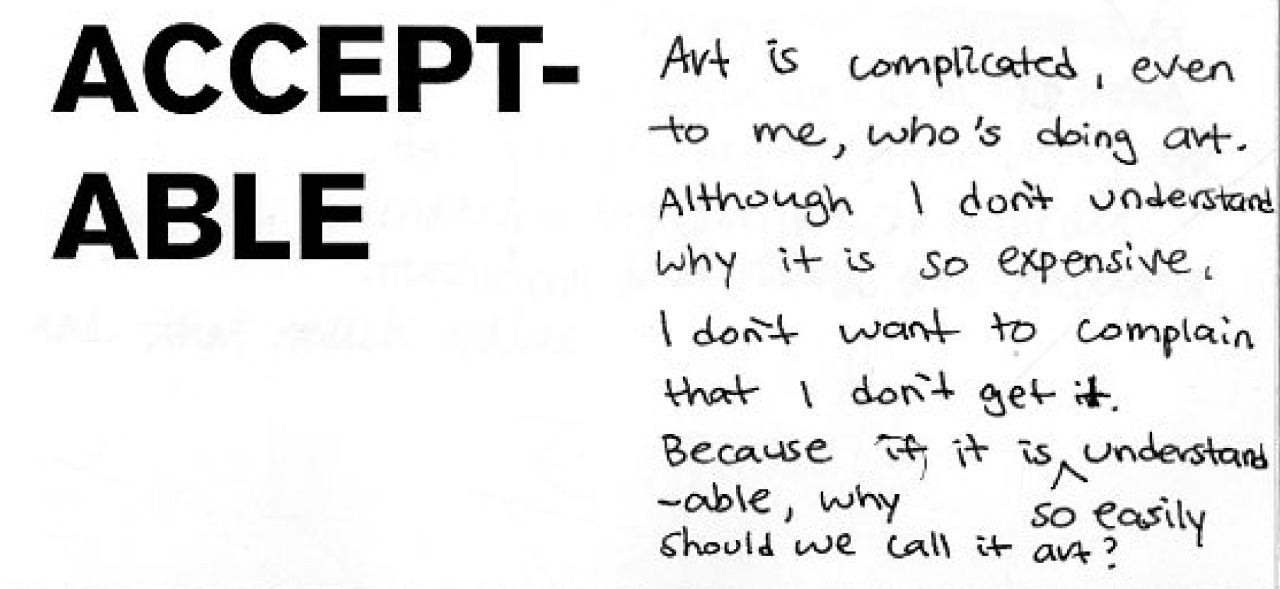 ACCEPT-
ABLE
Art is complicated, even
to me, who's doing art.
Although I don't understand
why it is so expensive.
I don't want to complain
that I don't get it.
Because if, it is ^ understand
-able, why so easily
should we call it art?